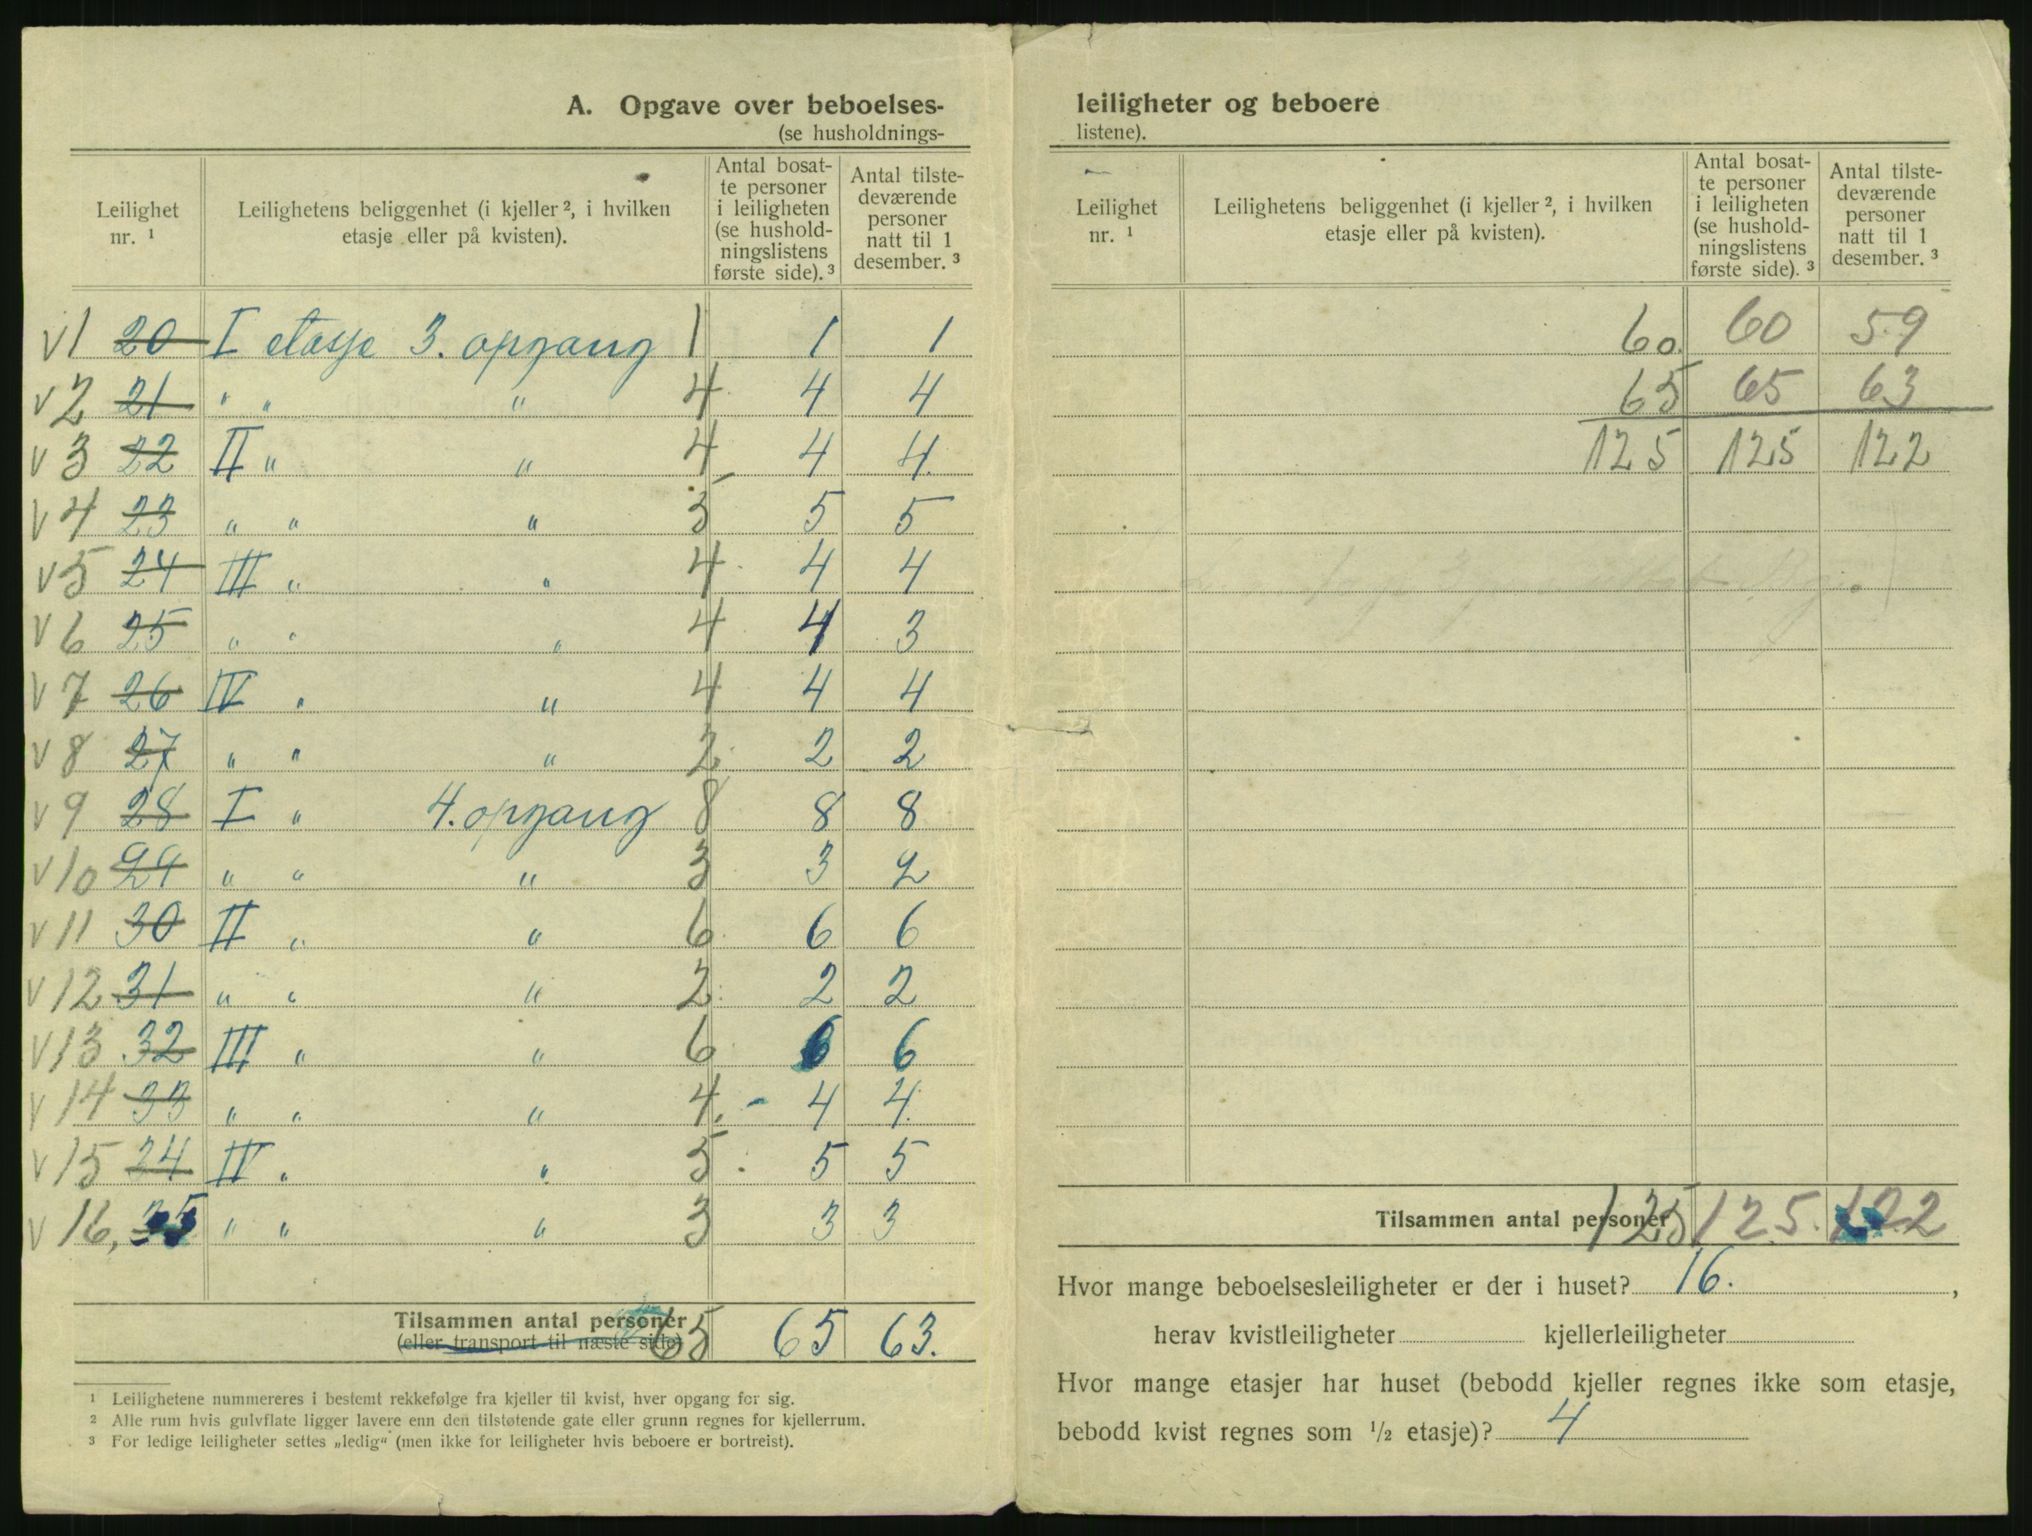 A. Opgave over beboelses-
(se husholdnings-
Leilighet nr. ¹ | Leilighetens beliggenhet (i kjeller ², i hvilken etasje eller på kvisten). | Antal bosatte personer i leiligheten (se husholdningslistens første side). ³ | Antal tilstedeværende personer natt til 1 desember. ³
v 1 20 I etasje 3. opgang 1 1 1
v 2 21 " " " 4 4 4
v 3 22 II " " 4 4 4.
v 4 23 " " " 5 5 5
v 5 24 III " " 4 4 4
v 6 25 " " " 4 4 3
v 7 26 IV " " 4 4 4
v 8 27 " " " 2 2 2
v 9 28 I " 4. opgang 8 8 8
v 10 29 " " " 3 3 2
v 11 30 II " " 6 6 6
v 12 31 " " " 2 2 2
v 13 32 III " " 6 6 6
v 14 33 " " " 4. - 4 4.
v 15 34 IV " " 5 5 5
v 16, 35 " " " 3 3 3
Tilsammen antal personer 65 65 63.
(eller transport til næste side)
¹ Leilighetene nummereres i bestemt rekkefølge fra kjeller til kvist, hver opgang for sig.
² Alle rum hvis gulvflate ligger lavere enn den tilstøtende gate eller grunn regnes for kjellerrum.
³ For ledige leiligheter settes „ledig“ (men ikke for leiligheter hvis beboere er bortreist).
leiligheter og beboere
listene).
Leilighet nr. ¹ | Leilighetens beliggenhet (i kjeller ², i hvilken etasje eller på kvisten). | Antal bosatte personer i leiligheten (se husholdningslistens første side). ³ | Antal tilstedeværende personer natt til 1 desember. ³
60. 60 59
65 65 63
125 125 122
Tilsammen antal personer 125 125. 122
Hvor mange beboelsesleiligheter er der i huset? 16.,
herav kvistleiligheter kjellerleiligheter
Hvor mange etasjer har huset (bebodd kjeller regnes ikke som etasje,
bebodd kvist regnes som ½ etasje)? 4